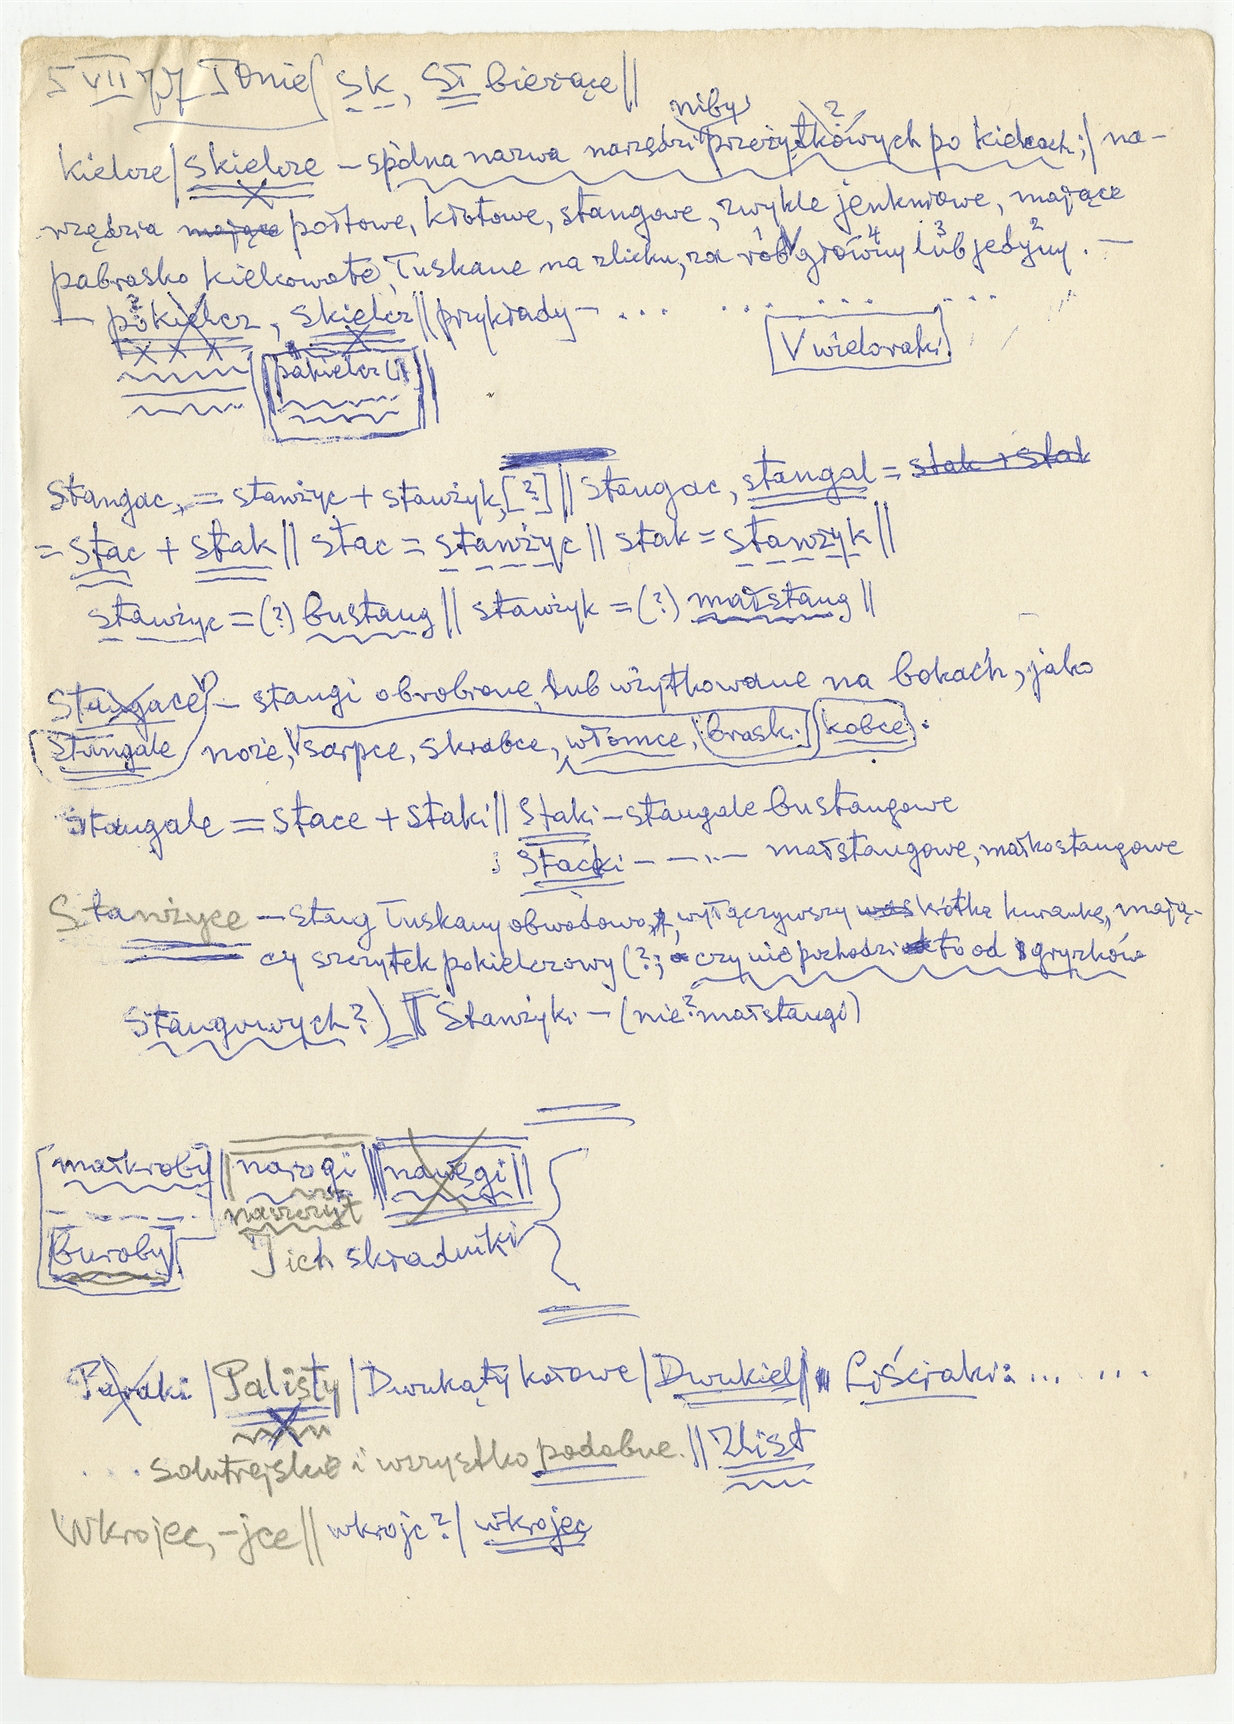 5 VII 77 Tonie / sk, st bierące ||
niby 2
kielcze / skielcze – spólna nazwa narzędzi przeżytkówych po kielcach; / na-
rzędzia mające połtowe, kłotowe, stangowe, zwykle jenkniowe, mające
pabrasko kielcowate, łuskane na zlicku, za rób główny lub jedyny. –
– pokielcz, skielcz || przykłady – ... ... ... ...
V wieloraki
pakielcz
Stangac, = stanżyc + stanżyk, [?] || stangac, stangal = stak + stak
= stac + stak || stac = stanżyc || stak = stanżyk ||
stanżyc = (?) bustang || stanżyk = (?) małstang ||
Stangace? – stangi obrobione, lub użytkowane na bokach, jako
Stangale noże, sarpce, skrabce, włomce, braski kobce.
Stangale = stace + staki || Staki – stangale bustangowe
; Stacki – – . – małstangowe, małkostangowe
Stanżyce – stang łuskany obwodowo, wyłączywszy krótką kurankę, mają-
cy szczytek pokielczowy (?; czy nie pochodzi to od gryzków
Stangowych?) || Stanżyki – (nie? małstangi)
małkroby || narogi || nawęgi ||
naszczyt
buroby I ich składniki
Paraki / Palisty / Dwukąty kołowe / Dwukiel || Liściaki: ... ...
... solutrejskie i wszystko podobne. || Zlist
Wkrojec, -jce || wkrojc? / wkrojec